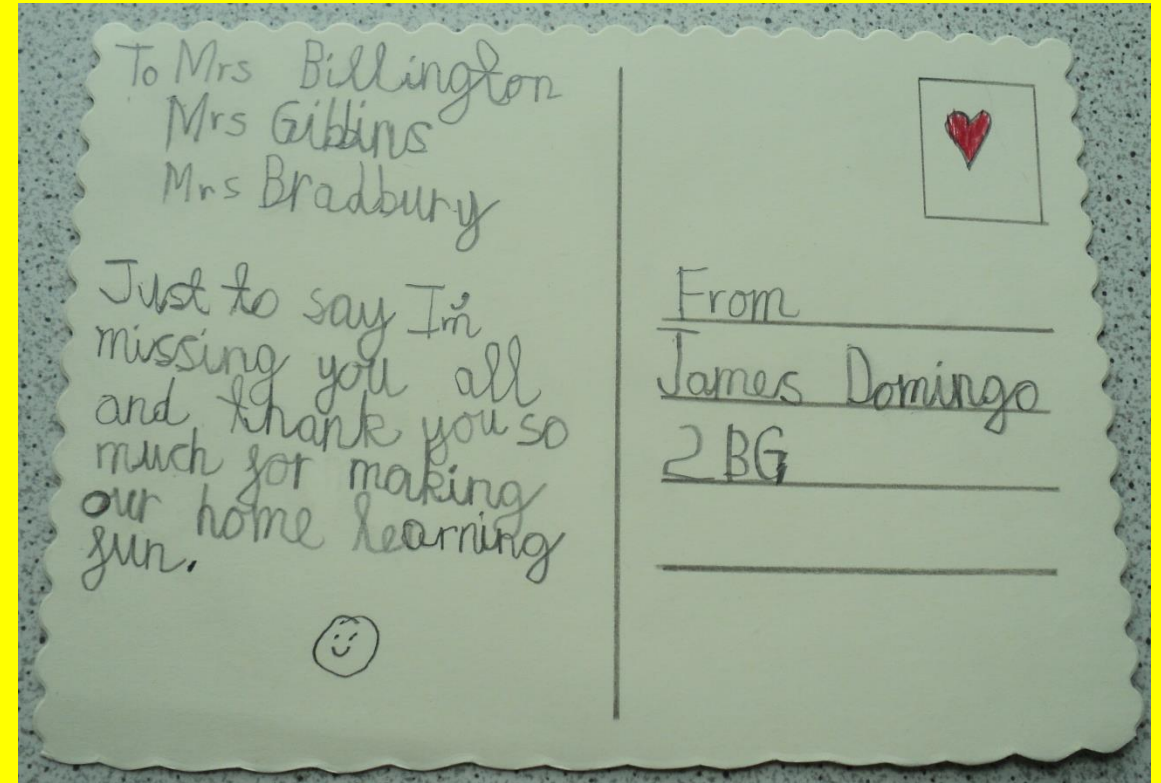 To Mrs Billington
Mrs Gibbins
Mrs Bradbury
Just to say I'm
missing you all
and thank you so
much for making
our home learning
fun.
From
James Domingo
2BG